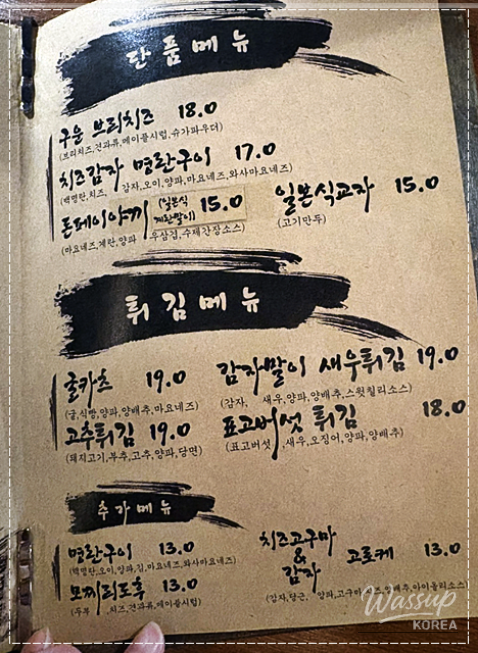 단품메뉴
구운 브리치즈 18.0
(브리치즈,견과류,메이플시럽,슈가파우더)
치즈감자 명란구이 17.0
(백명란,치즈, 감자,오이,양파,마요네즈,와사마요네즈)
돈페이야끼 (일본식 계란말이) 15.0
(마요네즈,계란,양파 우삼겹,수제간장소스)
일본식교자 15.0
(고기만두)
튀김메뉴
굴카츠 19.0
(굴,식빵,양파,양배추,마요네즈)
감자말이 새우튀김 19.0
(감자, 새우,양파,양배추,스윗칠리소스)
고추튀김 19.0
(돼지고기,부추,고추,양파,당면)
표고버섯 튀김 18.0
(표고버섯 ,새우,오징어,양파,양배추)
추가메뉴
명란구이 13.0
(백명란,오이,양파,김,마요네즈,와사마요네즈)
모찌리도후 13.0
(두부 ,치즈,견과류,메이플시럽)
치즈고구마
&
감자 고로케 13.0
(감자,당근, 양파,고구마,치즈,양배추,아이올리소스)
Wassup
KOREA